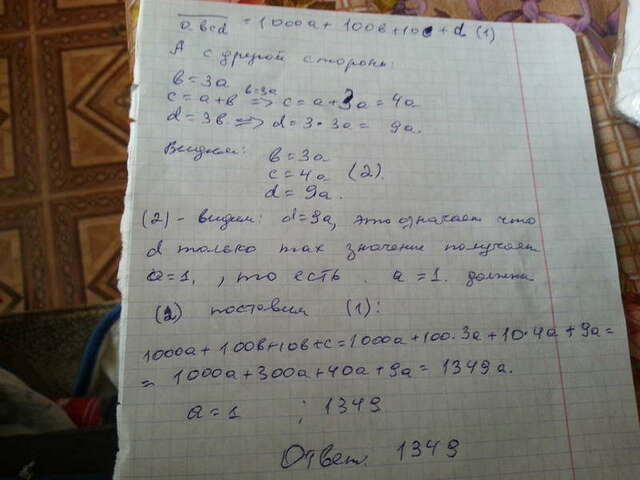 abcd = 1000a + 100b + 10c + d (1)
А с другой стороны:
b = 3a
c = a+b =>^{b=3a} c = a+3a = 4a
d = 3b => d = 3·3a = 9a.
Видим:
b = 3a
c = 4a (2).
d = 9a.
(2) - видим: d=9a, это означает что
d только так значение получает
a=1, , то есть . a = 1. должна
(2) поставим (1):
1000a + 100b+10b+c = 1000a+100·3a+10·4a+9a =
= 1000a+300a+40a+9a = 1349a.
a = 1 ; 1349
Ответ. 1349